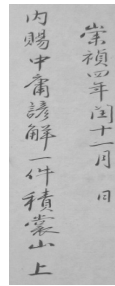 崇禎四年閏十一月 日
內賜中庸諺解一件積裳山上